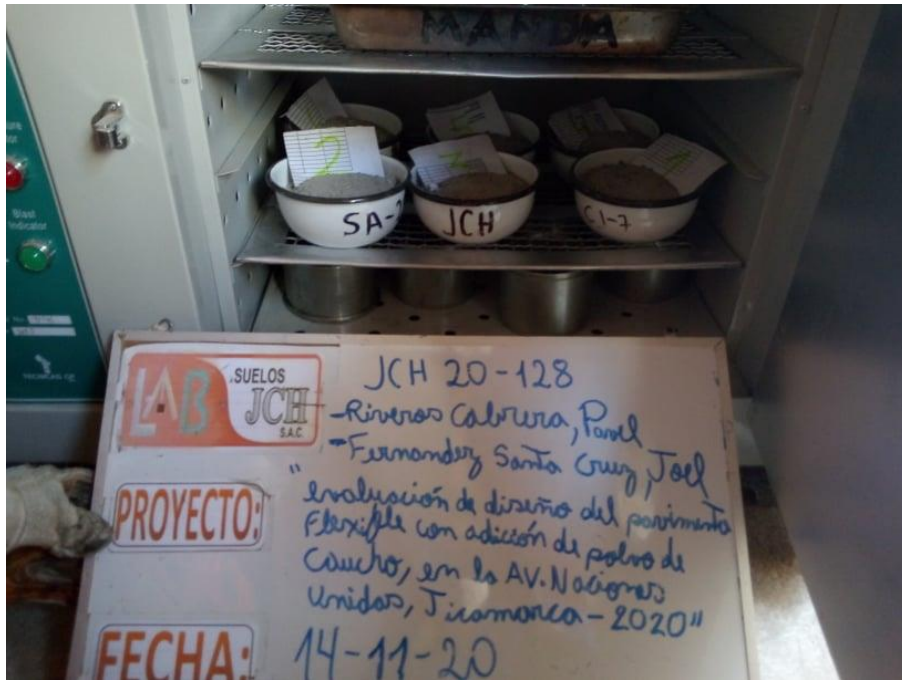 MANDA
2
1
SA-2
JCH
C1-7
Blast
Indicator
TECNICAS CP
LAB
SUELOS
JCH
S.A.C.
JCH 20-128
-Riveros Cabrera, Pavel
-Fernandez Santa Cruz, Joel
PROYECTO:
"evaluación de diseño del pavimento
Flexible con adición de polvo de
Caucho, en la AV. Naciones
Unidas, Jicamarca - 2020"
FECHA:
14-11-20